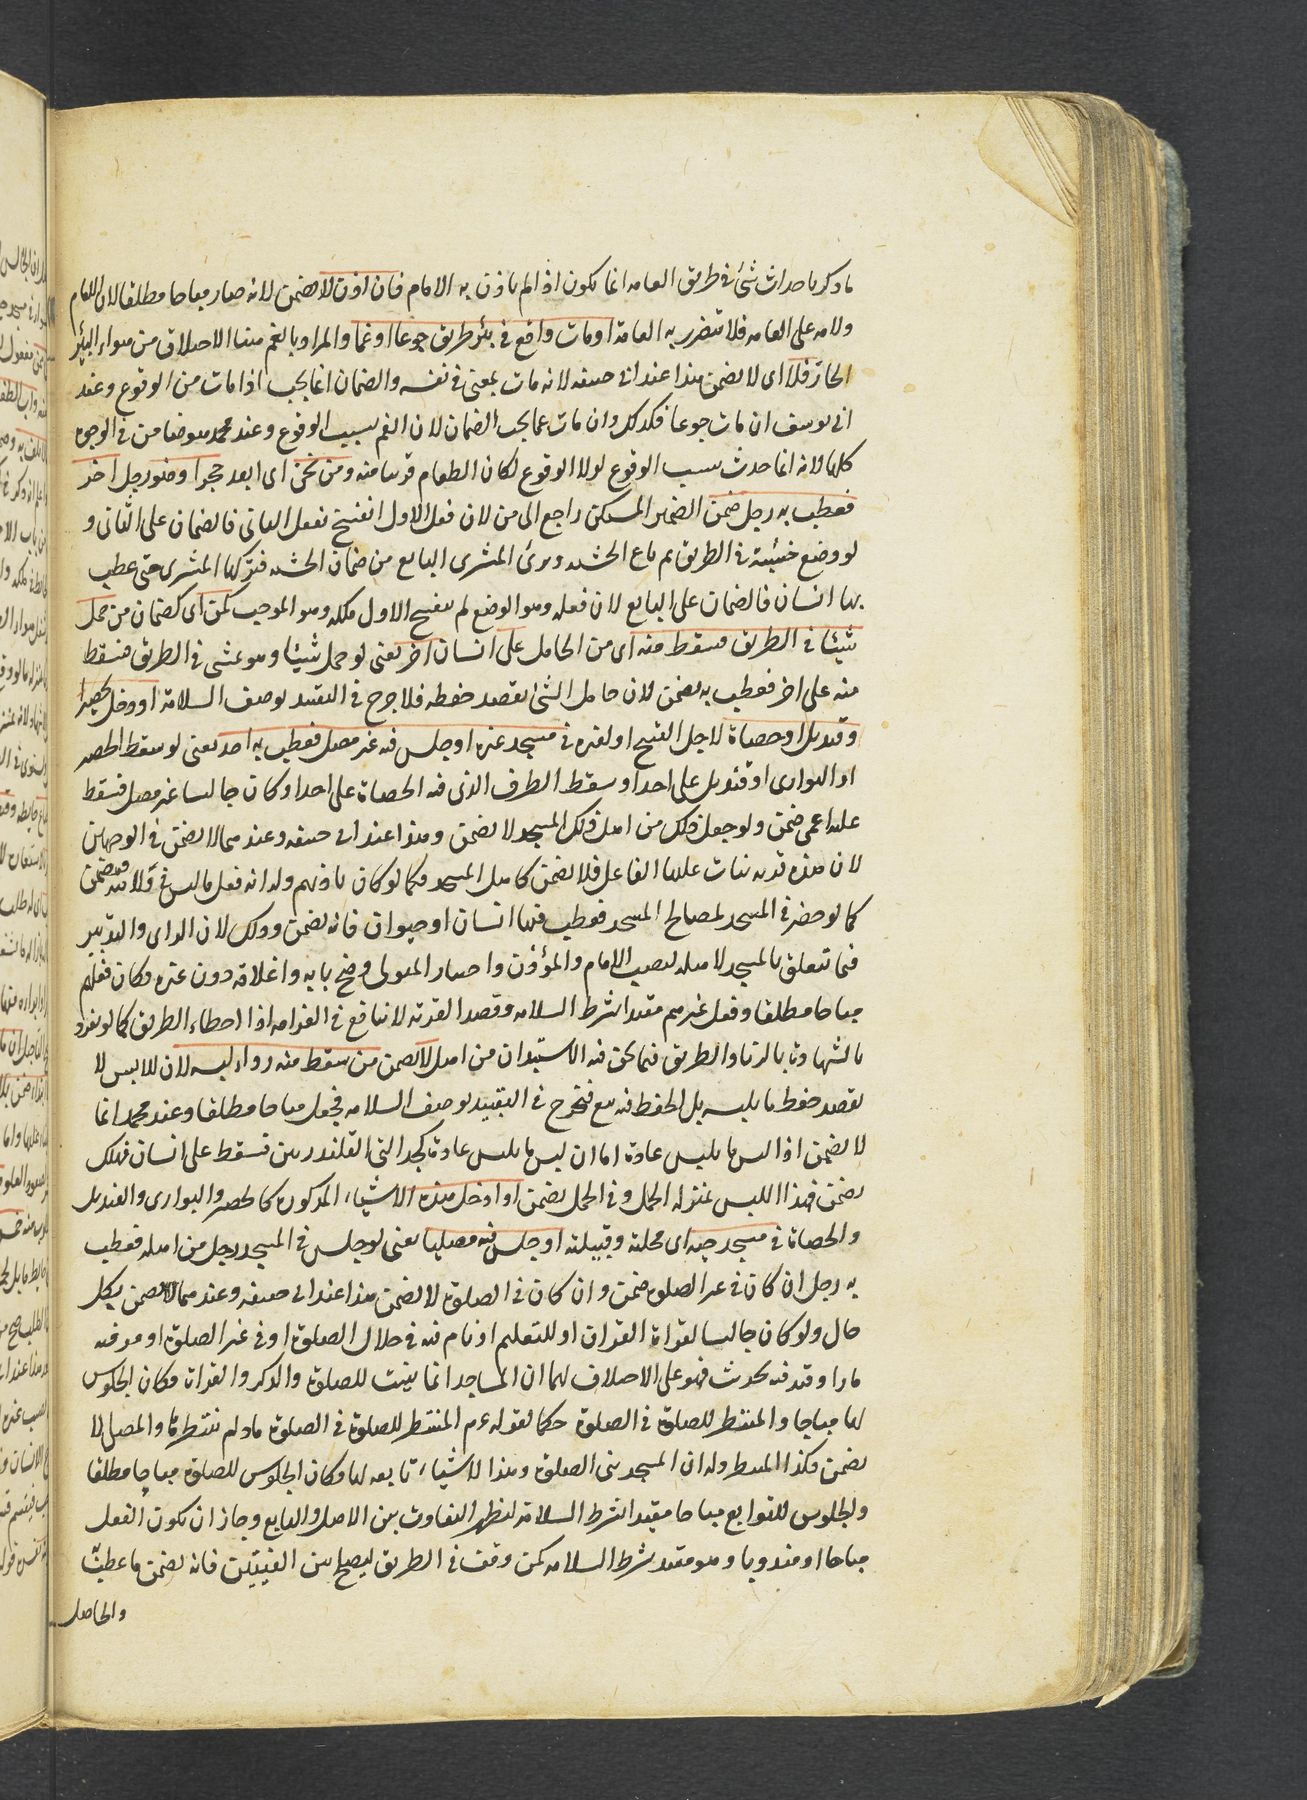 ما ذكر باحداث شئ في طريق العامه انما يكون اذا لم ياذن به الامام فان اذن لا يضمن لانه صار مباحا مطلقا لان للامام
ولاية على العامه فلا تتضرر به العامة او مات واقع في بئر طريق جوعا او غما والمراد بالغم هنا الاختناق من هواء البئر
الحارّ فلا اى لا يضمن هذا عند ابي حنيفه لانه مات بمعنى في نفسه والضمان انما يجب اذا مات من الوقوع وعند
ابي يوسف ان مات جوعا فكذلك وان مات غما يجب الضمان لان الغم بسبب الوقوع وعند محمد هو ضامن في الوجوه
كلها لانه انما حدث بسبب الوقوع لولا الوقوع لكان الطعام قريبا منه ومن نحى اى ابعد حجرا وضعه رجل اخر
فعطب به رجل ضمن الضمير المستكن راجع الى من لان فعل الاول انفسخ بفعل الثاني فالضمان على الثاني و
لو وضع خشبة في الطريق ثم باع الخشبه وبرئ المشترى البايع من ضمان الخشبه فتركها المشترى حتى عطب
بها انسان فالضمان على البايع لان فعله وهو الوضع لم ينفسخ الاول ملكه وهو الموجب كمن اى كضمان من حمل
شيئا في الطريق فسقط منه اى من الحامل على انسان اخر يعنى لو حمل شيئا وهو يمشى في الطريق فسقط
منه على اخر فعطب به يضمن لان حامل الشئ يقصد حفظه فلا حرج في التقييد بوصف السلامة او دخل بحصير
وقنديل او حصاة لاجل الفتح او لغيره في مسجد غيره او جلس فيه غير مصل فعطب به احد يعنى لو سقط الحصير
او البوارى او قنديل على احد او سقط الظرف الذى فيه الحصاة على احد او كان جالسا غير مصل فسقط
عليه اعمى ضمن ولو جعل ذلك من اهل ذلك المسجد لا يضمن وهذا عند ابي حنيفه وعندهما لا يضمن في الوجهين
لان هذه قربه يثاب عليها الفاعل فلا يضمن كاهل المسجد وكما لو كان باذنهم وله انه فعل ما ليس في ولايته فيضمن
كما لو حفر في المسجد لمصالح المسجد فعطب فيها انسان او حيوان فانه يضمن وذلك لان الراى والتدبير
فيما يتعلق بالمسجد لاهله كنصب الامام والمؤذن واختيار المتولى وفتح بابه واغلاقه دون غيره فكان فعلهم
مباحا مطلقا وفعل غيرهم مقيدا بشرط السلامه وقصد القربة لا ينافي في الغرامه اذا اخطاء الطريق كما لو تفرد
بالشهادة بالزنا والطريق فيما نحن فيه الاستيذان من اهله لا يضمن من سقط منه رداء لبسه لان اللابس لا
يقصد حفظ ما يلبسه بل الحفظ فيه يقع فيحرج في التقييد بوصف السلامه فجعل مباحا مطلقا وعند محمد انما
لا يضمن اذا لبس ما يلبس عادة اما ان لبس ما لا يلبس عادة كجوالق القلندريين فسقط على انسان فهلك
يضمن فهذا اللبس بمنزلة الحمل وفي الحمل يضمن او ادخل هذه الاشياء المذكوره كالحصير والبوارى والقنديل
والحصاة في مسجد حيه اى محلته وقبيلته او جلس فيه مصليا يعنى لو جلس في المسجد رجل من اهله فعطب
به رجل ان كان في غير الصلوة ضمن وان كان في الصلوة لا يضمن هذا عند ابي حنيفه وعندهما لا يضمن بكل
حال ولو كان جالسا لقراءة القران او للتعليم او نام فيه في خلال الصلوة او في غير الصلوة او مر فيه
مارا وقعد فيه لحديث فهو على الاختلاف لهما ان المساجد انما بنيت للصلوة والذكر والقراءة فكان الجلوس
لها مباحا والمنتظر للصلوة في الصلوة حكما لقوله عم المنتظر للصلوة في الصلوة ما دام ينتظرها والمصلى لا
يضمن فكذا المنتظر وله ان المسجد بنى للصلوة وهذه الاشياء تابعه لها فكان الجلوس للصلوة مباحا مطلقا
والجلوس للتوابع مباحا مقيدا بشرط السلامة ليظهر التفاوت بين الاصل والتابع وجاز ان يكون الفعل
مباحا او مندوبا وهو مقيد بشرط السلامه كمن وقف في الطريق ليصلح بين الفئتين فانه يضمن ما عطب
والحاصل